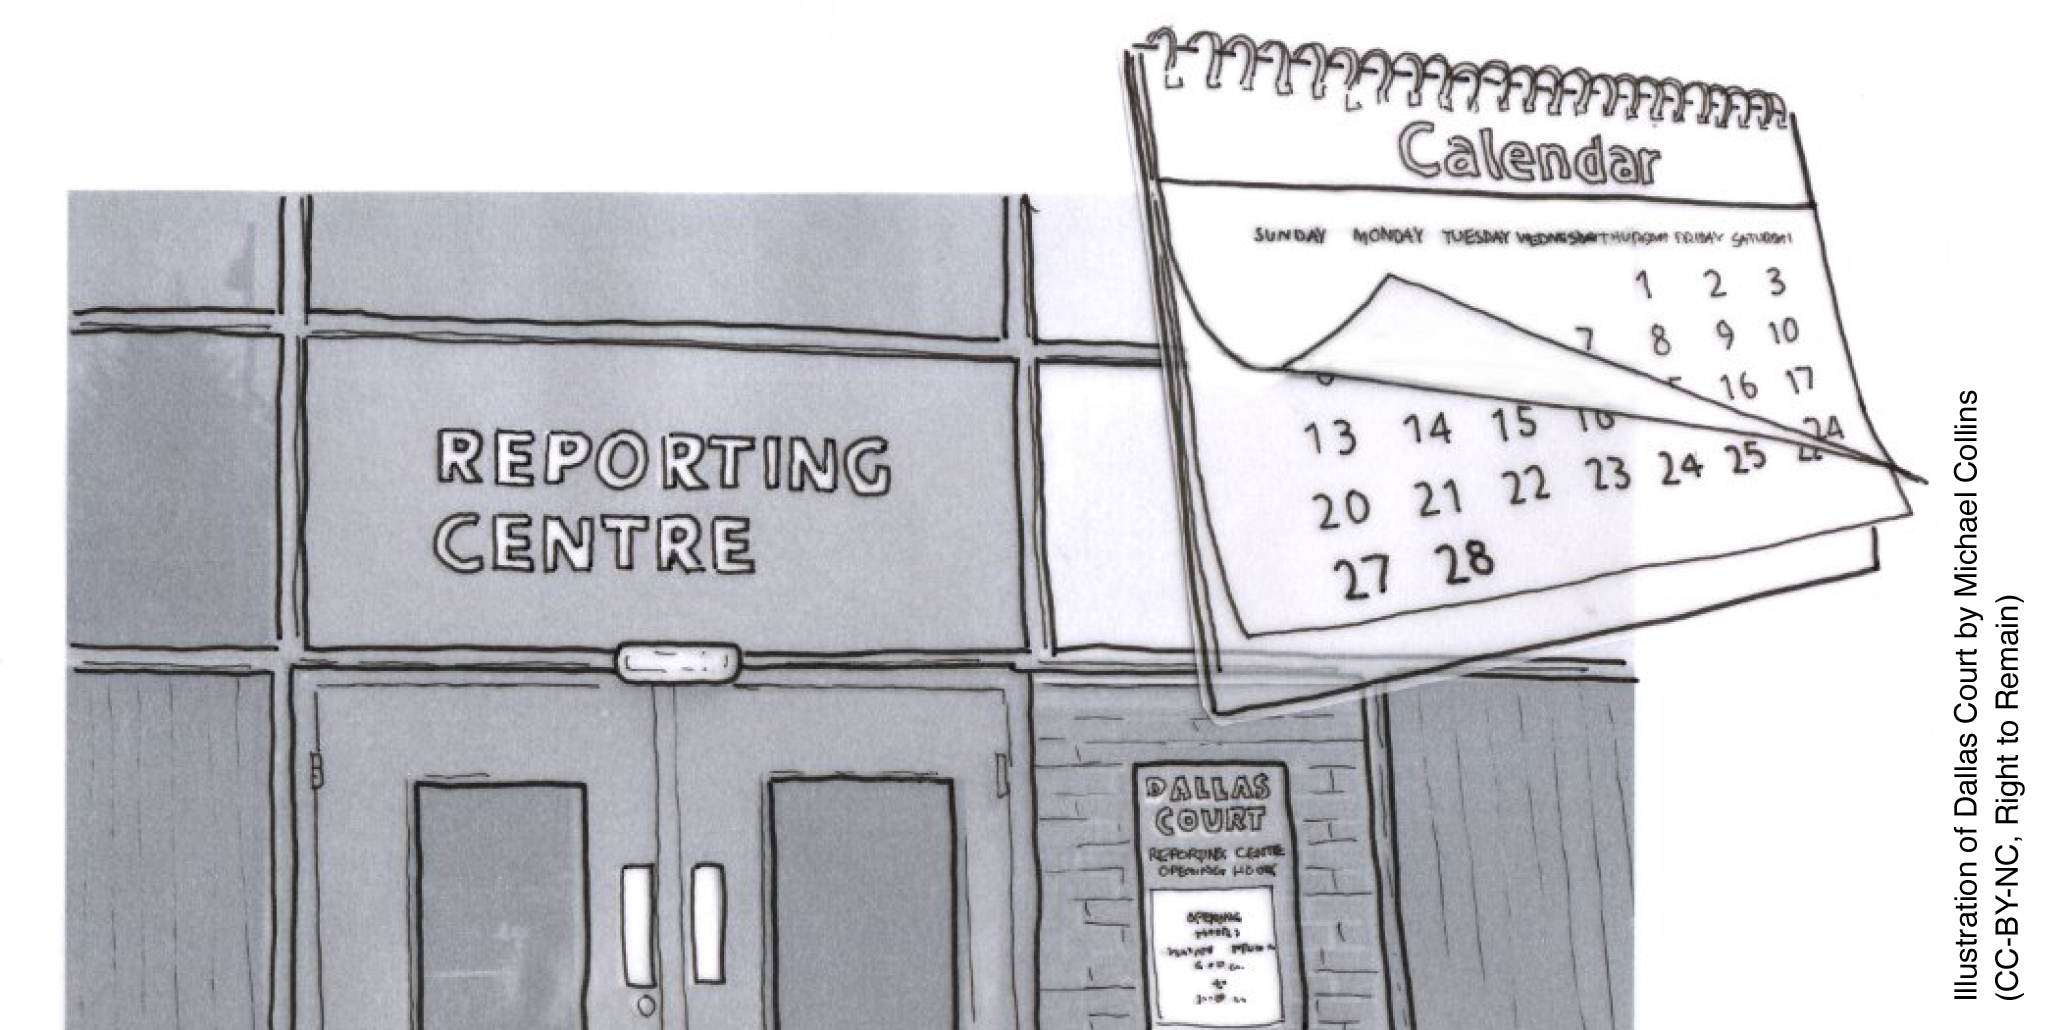 Calendar
SUNDAY MONDAY TUESDAY WEDNESDAY THURSDAY FRIDAY SATURDAY
1 2 3
7 8 9 10
16 17
24
13 14 15 16
20 21 22 23 24 25
27 28
REPORTING
CENTRE
DALLAS
COURT
REPORTING CENTRE
OPENING HOURS
OPENING
Illustration of Dallas Court by Michael Collins
(CC-BY-NC, Right to Remain)